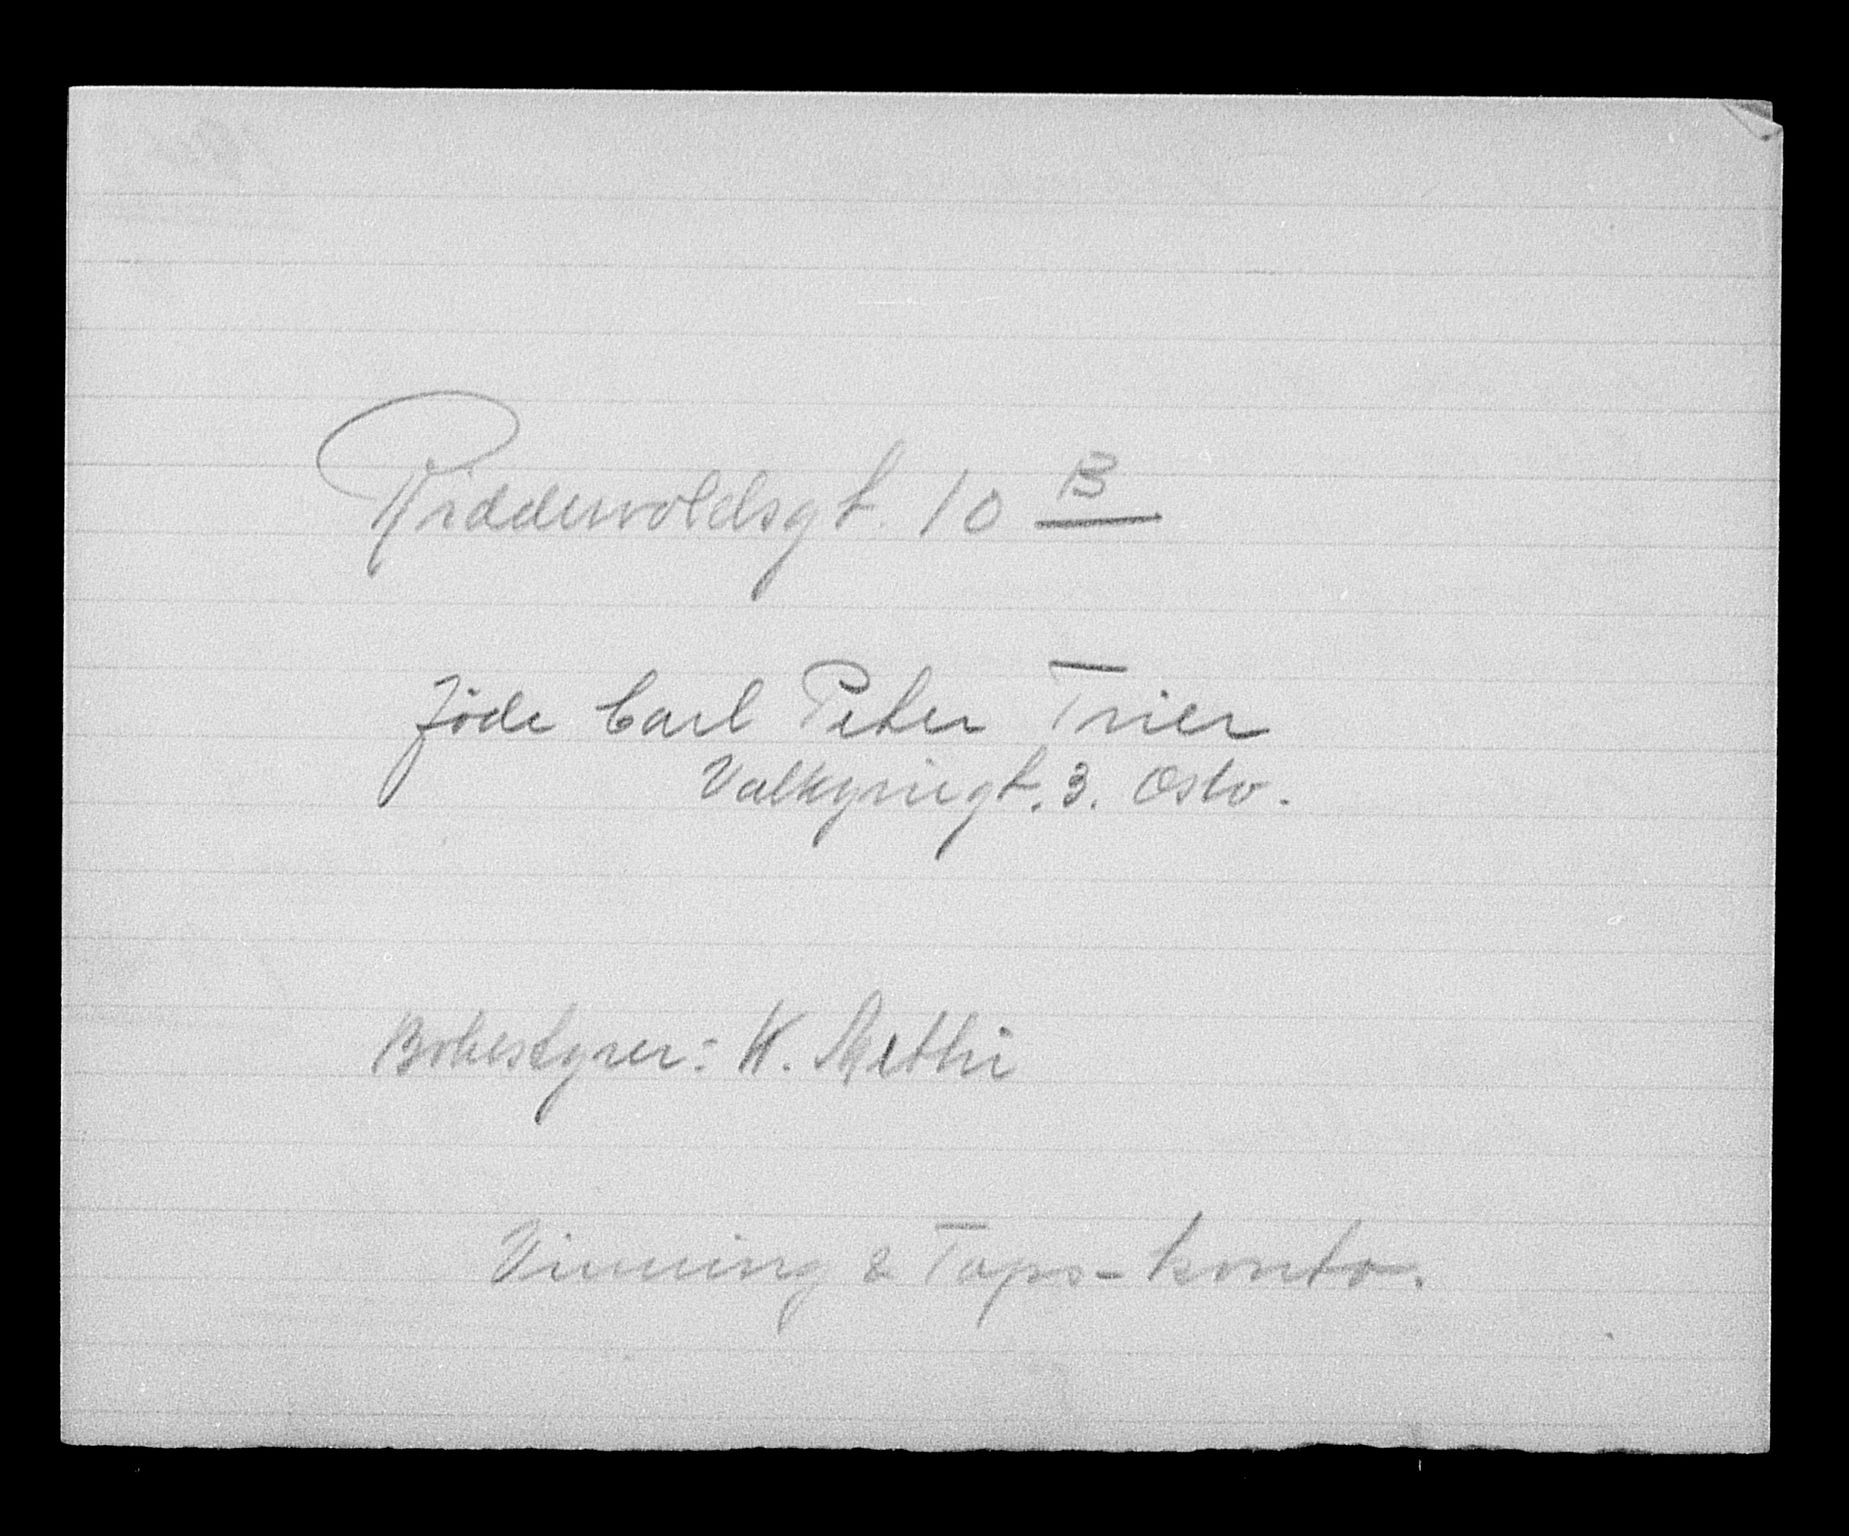 Riddervoldsgt. 10 B
Jøde Carl Peter Trier
Valkyriegt. 3. Oslo.
Bobestyrer: W. Methi
Vinning & Taps-konto.